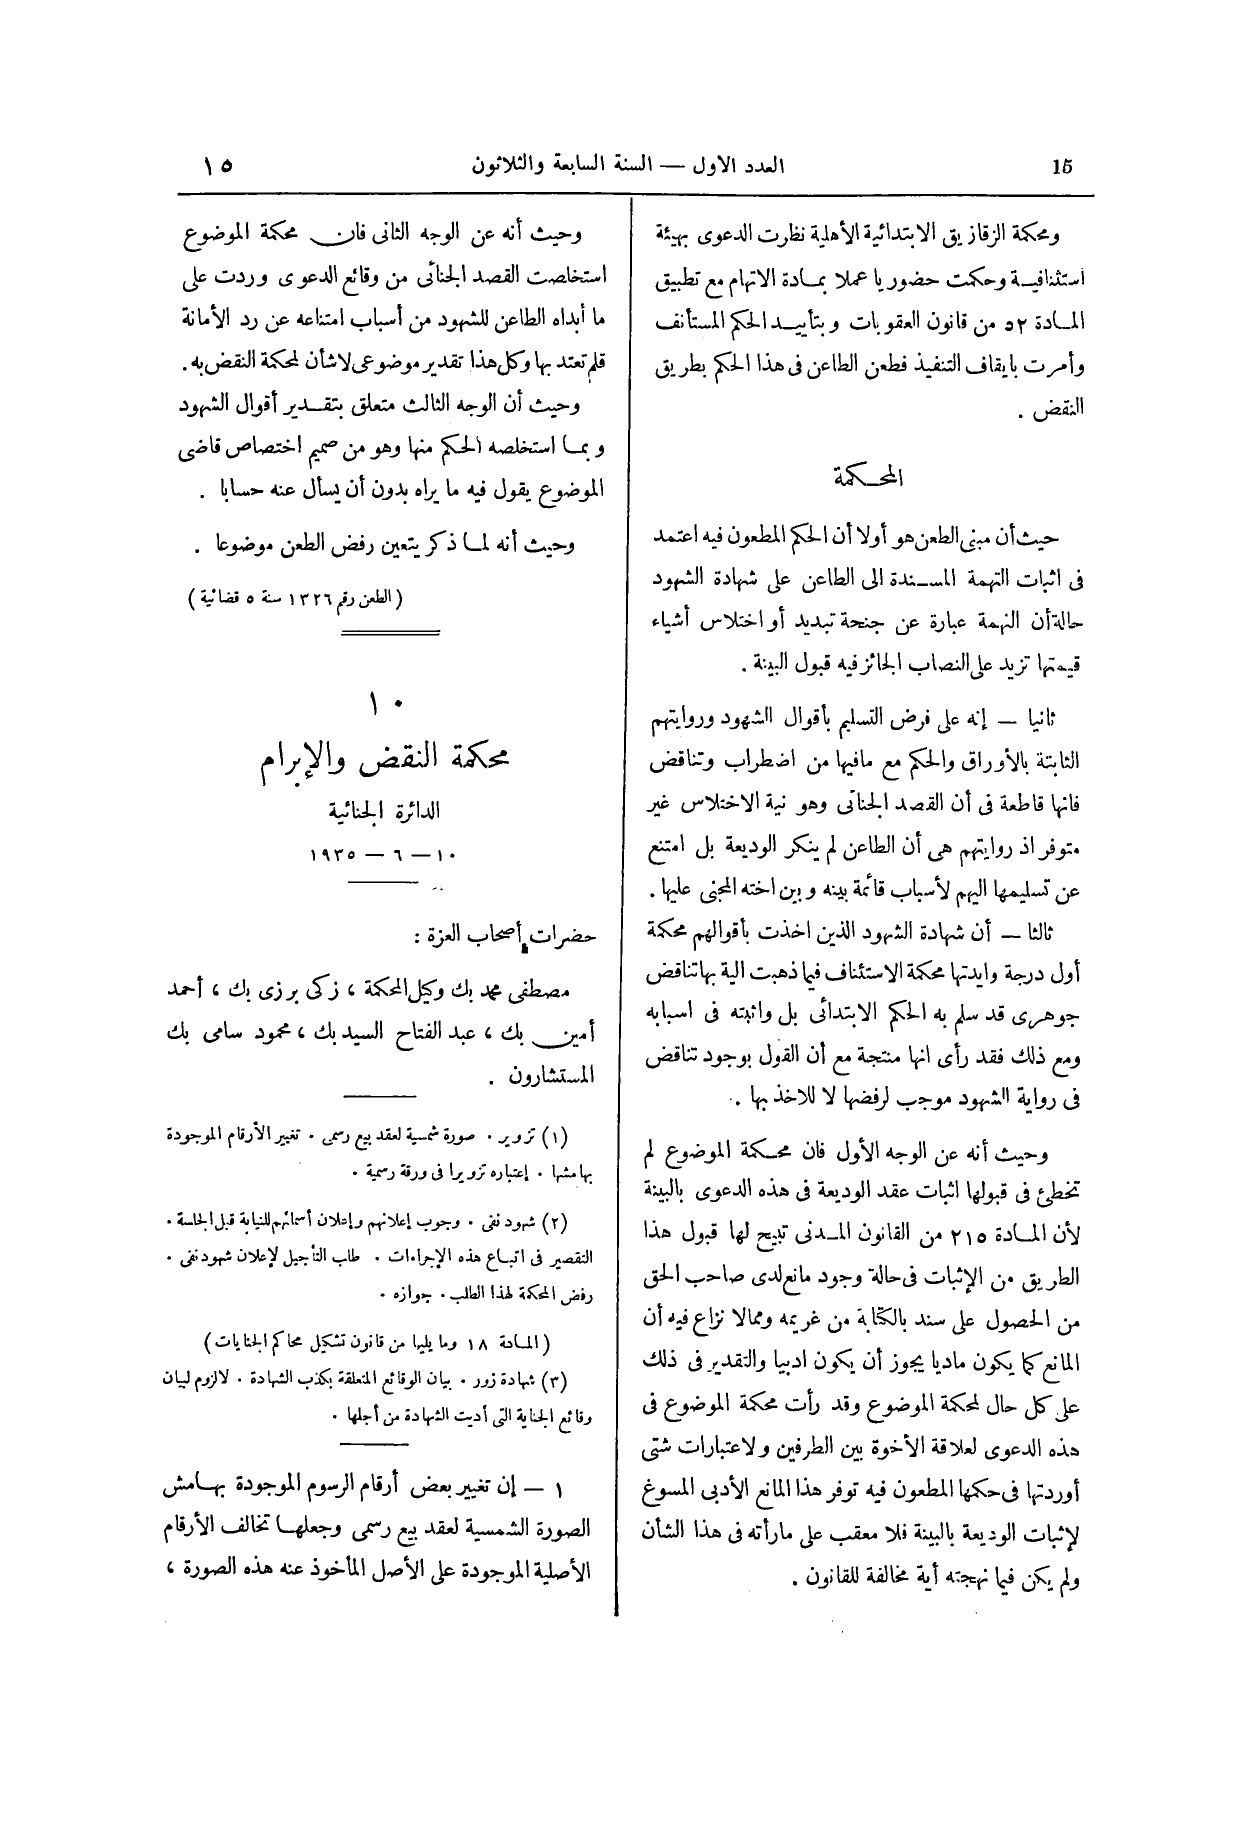 15
العدد الاول — السنة السابعة والثلاثون
١٥
ومحكمة الزقازيق الابتدائية الأهلية نظرت الدعوى بهيئة
استئنافية وحكمت حضوريا عملا بمادة الاتهام مع تطبيق
المادة ٥٢ من قانون العقوبات وبتأييد الحكم المستأنف
وأمرت بايقاف التنفيذ فطعن الطاعن فى هذا الحكم بطريق
النقض .
المحكمة
حيث أن مبنى الطعن هو أولا أن الحكم المطعون فيه اعتمد
فى اثبات التهمة المسندة الى الطاعن على شهادة الشهود
حالة أن التهمة عبارة عن جنحة تبديد أو اختلاس أشياء
قيمتها تزيد على النصاب الجائز فيه قبول البينة .
ثانيا — إنه على فرض التسليم بأقوال الشهود وروايتهم
الثابتة بالأوراق والحكم مع مافيها من اضطراب وتناقض
فانها قاطعة فى أن القصد الجنائى وهو نية الاختلاس غير
متوفر اذ روايتهم هى أن الطاعن لم ينكر الوديعة بل امتنع
عن تسليمها اليهم لأسباب قائمة بينه وبين اخته المجنى عليها .
ثالثا — أن شهادة الشهود الذين اخذت بأقوالهم محكمة
أول درجة وايدتها محكمة الاستئناف فيما ذهبت الية بها تناقض
جوهرى قد سلم به الحكم الابتدائى بل واثبته فى اسبابه
ومع ذلك فقد رأى انها منتجة مع أن القول بوجود تناقض
فى رواية الشهود موجب لرفضها لا للاخذ بها .
وحيث أنه عن الوجه الأول فان محكمة الموضوع لم
تخطئ فى قبولها اثبات عقد الوديعة فى هذه الدعوى بالبينة
لأن المادة ٢١٥ من القانون المدنى تبيح لها قبول هذا
الطريق من الإثبات فى حالة وجود مانع لدى صاحب الحق
من الحصول على سند بالكتابة من غريمه ومما لا نزاع فيه أن
المانع كما يكون ماديا يجوز أن يكون ادبيا والتقدير فى ذلك
على كل حال لمحكمة الموضوع وقد رأت محكمة الموضوع فى
هذه الدعوى لعلاقة الأخوة بين الطرفين ولاعتبارات شتى
أوردتها فى حكمها المطعون فيه توفر هذا المانع الأدبى المسوغ
لإثبات الوديعة بالبينة فلا معقب على مارأته فى هذا الشأن
ولم يكن فيما نهجته أية مخالفة للقانون .
وحيث أنه عن الوجه الثانى فان محكمة الموضوع
استخلصت القصد الجنائى من وقائع الدعوى وردت على
ما أبداه الطاعن للشهود من أسباب امتناعه عن رد الأمانة
فلم تعتد بها وكل هذا تقدير موضوعى لاشأن لمحكمة النقض به .
وحيث أن الوجه الثالث متعلق بتقدير أقوال الشهود
وبما استخلصه الحكم منها وهو من صميم اختصاص قاضى
الموضوع يقول فيه ما يراه بدون أن يسأل عنه حسابا .
وحيث أنه لما ذكر يتعين رفض الطعن موضوعا .
( الطعن رقم ١٣٢٦ سنة ٥ قضائية )
١٠
محكمة النقض والإبرام
الدائرة الجنائية
١٠ — ٦ — ١٩٣٥
حضرات أصحاب العزة :
مصطفى محمد بك وكيل المحكمة ، زكى برزى بك ، أحمد
أمين بك ، عبد الفتاح السيد بك ، محمود سامى بك
المستشارون .
(١) تزوير . صورة شمسية لعقد بيع رسمى . تغيير الأرقام الموجودة
بهامشها . إعتباره تزويرا فى ورقة رسمية .
(٢) شهود نفى . وجوب إعلانهم وإعلان أسمائهم للنيابة قبل الجلسة .
التقصير فى اتباع هذه الإجراءات . طلب التأجيل لإعلان شهود نفى .
رفض المحكمة لهذا الطلب . جوازه .
( المادة ١٨ وما يليها من قانون تشكيل محاكم الجنايات )
(٣) شهادة زور . بيان الوقائع المتعلقة بكذب الشهادة . لا لزوم لبيان
وقائع الجناية التى أديت الشهادة من أجلها .
١ — إن تغيير بعض أرقام الرسوم الموجودة بهامش
الصورة الشمسية لعقد بيع رسمى وجعلها تخالف الأرقام
الأصلية الموجودة على الأصل المأخوذ عنه هذه الصورة ،